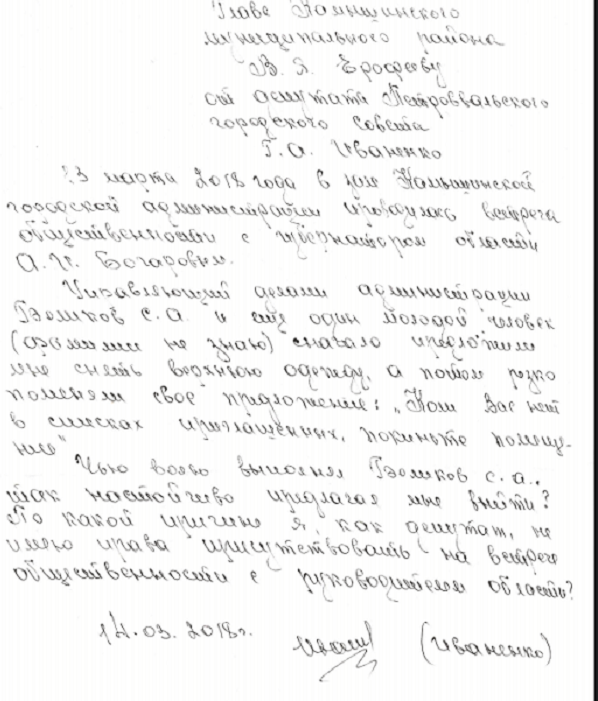 Главе Камышинского
муниципального района
В. Я. Ерофееву
от депутата Петроввальского
городского Совета
Г. А. Иваненко
13 марта 2018 года в зале Камышинской
городской администрации проводилась встреча
общественности с губернатором области
А. И. Бочаровым.
Управляющий делами администрации
С. А. и ещё один молодой человек
(фамилии не знаю) сначала предложили
мне снять верхнюю одежду, а потом резко
поменяли своё предложение: „Коли Вас нет
в списках приглашённых, покиньте помеще-
ние"
Чью волю выполнял С. А.,
так настойчиво предлагая мне выйти?
По какой причине я, как депутат, не
имею права присутствовать на встрече
общественности с руководителем области?
14.03.2018г. (Иваненко)